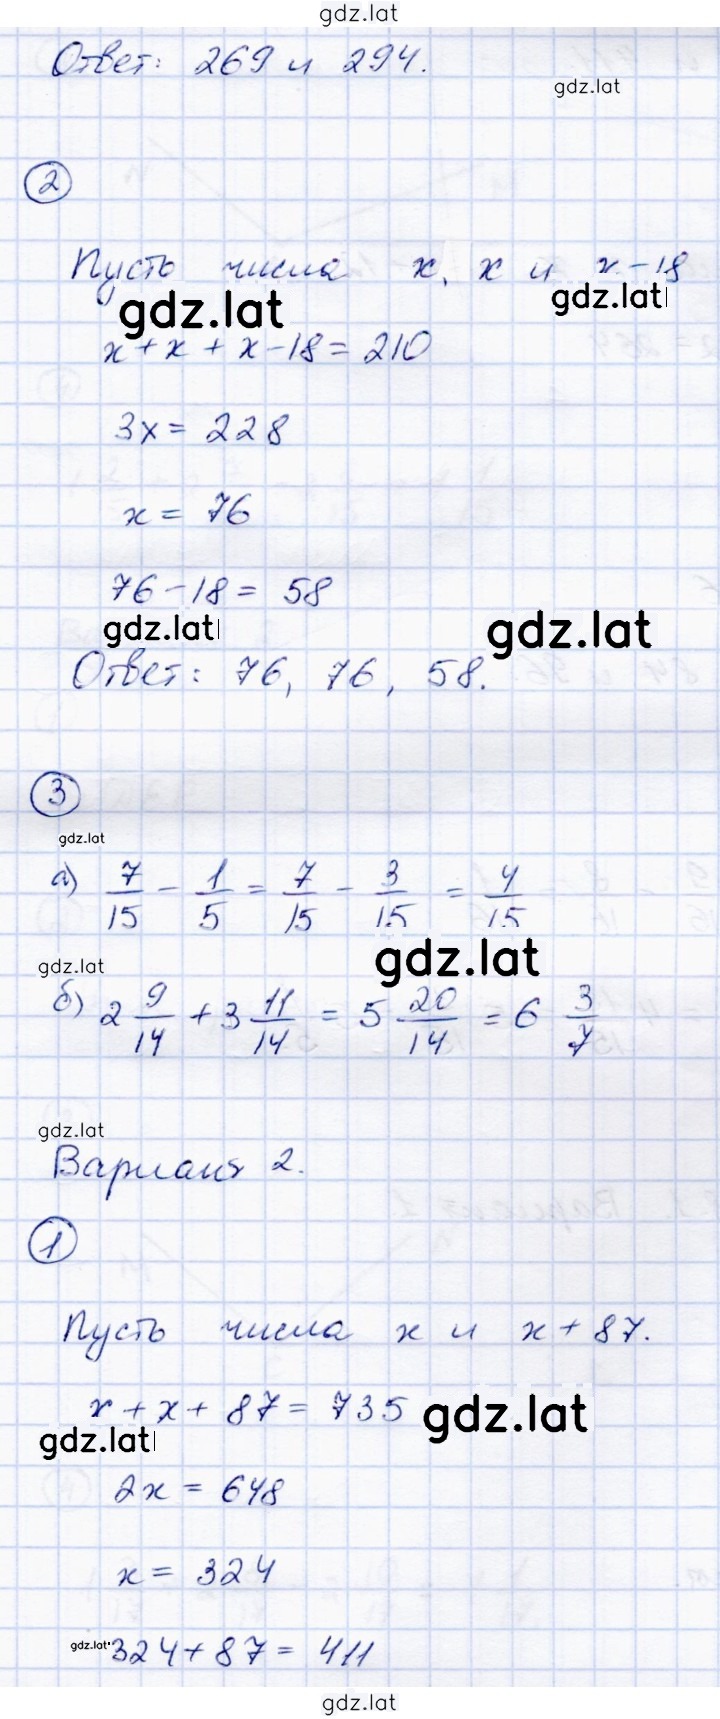 gdz.lat
Ответ: 269 и 294.
gdz.lat
2
Пусть числа x, x и x-18
gdz.lat gdz.lat
x + x + x - 18 = 210
3x = 228
x = 76
76 - 18 = 58
gdz.lat gdz.lat
Ответ: 76, 76, 58.
3
gdz.lat
а) 7/15 - 1/5 = 7/15 - 3/15 = 4/15
gdz.lat gdz.lat
б) 2 9/14 + 3 11/14 = 5 20/14 = 6 3/7
gdz.lat
Вариант 2.
1
Пусть числа x и x + 87.
x + x + 87 = 735 gdz.lat
gdz.lat
2x = 648
x = 324
gdz.lat 324 + 87 = 411
gdz.lat